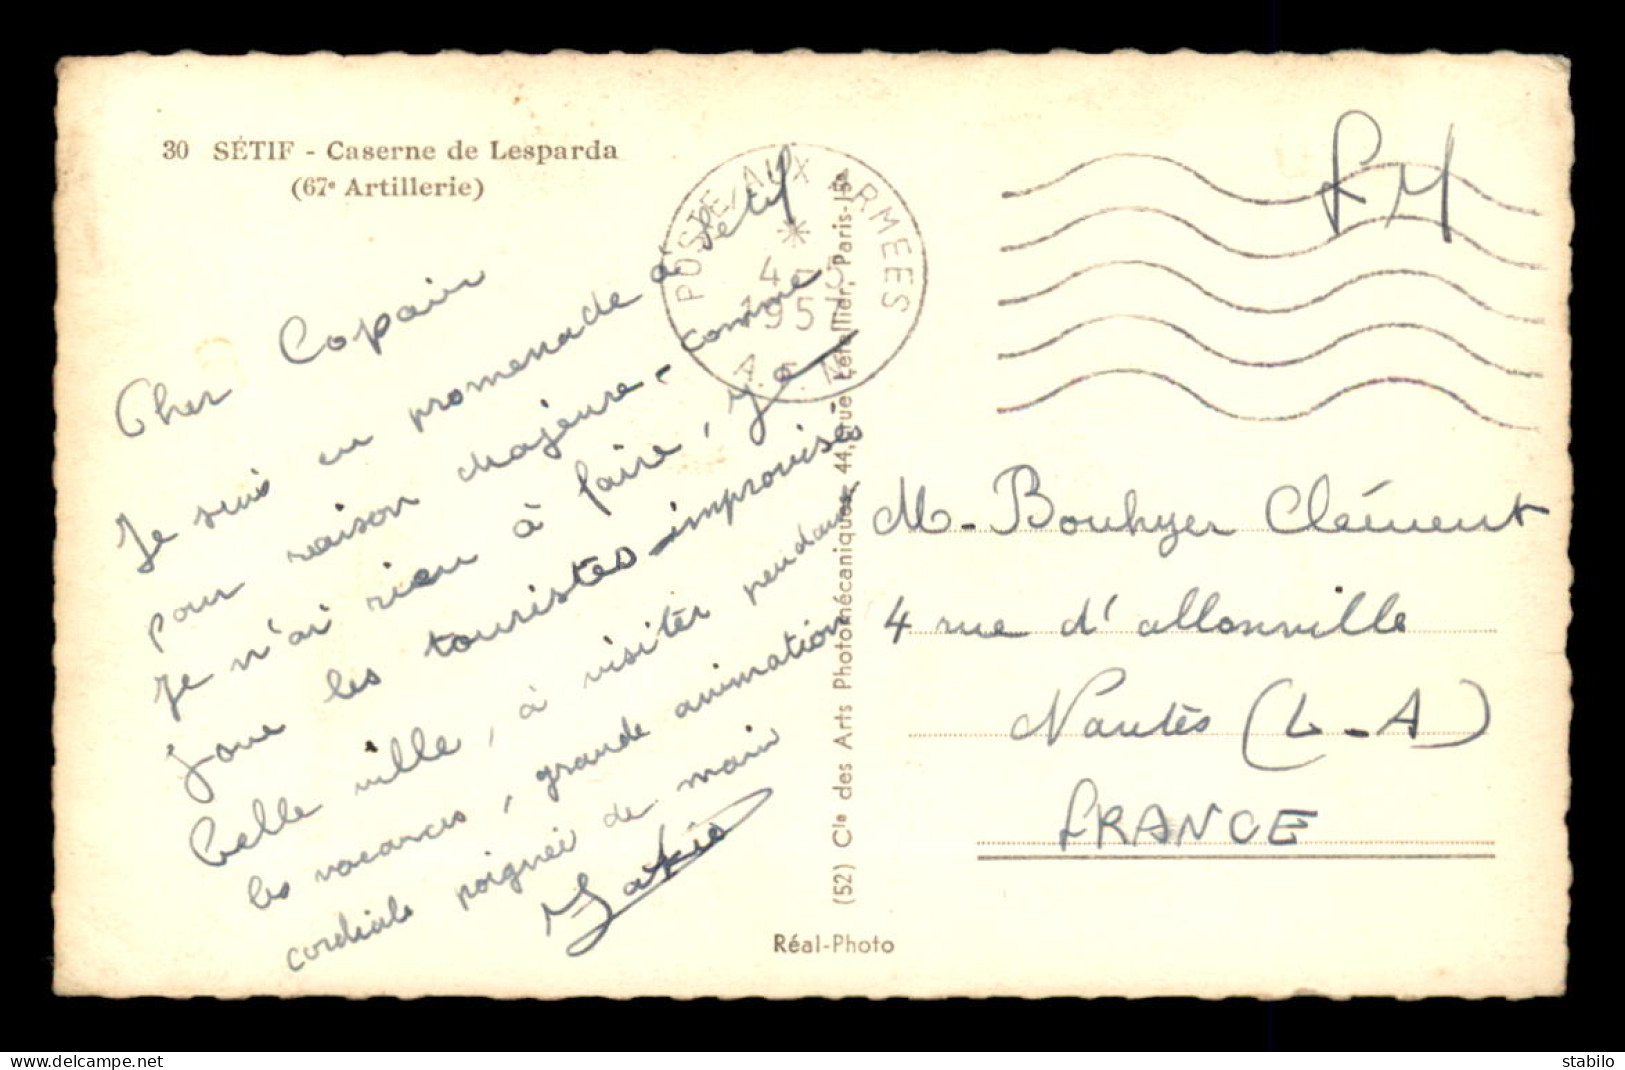 30 SÉTIF - Caserne de Lesparda
(67e Artillerie)
Cher Copain
Je suis en promenade à Setif
pour raison majeure - comme
je n'ai rien à faire, je
joue les touristes improvisés -
belle ville, à visiter pendant
les vacances, grande animation
cordiale poignée de main
POSTE AUX ARMEES
*
4 - 5
195
A.F.N
(52) Cie des Arts Photomécaniques, 44, rue Letellier, Paris-15e
Réal-Photo
FM
M - Bouhyer Clément
4 rue d'allonville
Nantes (L-A)
FRANCE
stabilo
www.delcampe.net